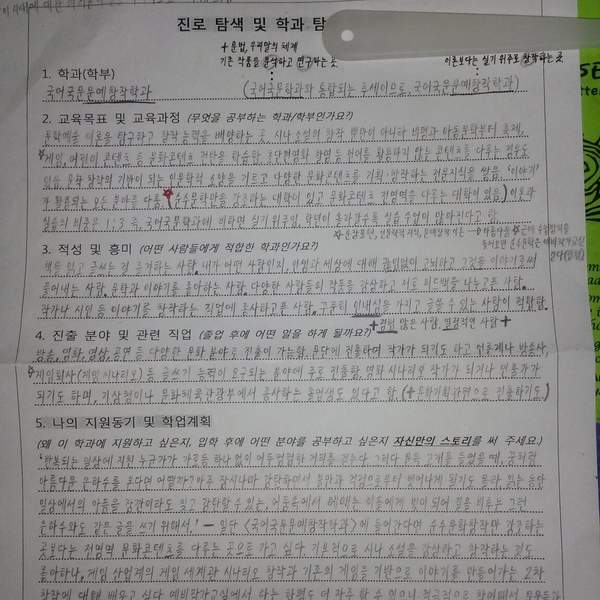 진로 탐색 및 학과 탐
+ 문법, 우리말의 체계
기존 작품을 분석하고 연구하는 곳
이론보다는 실기 위주로 창작하는 곳
1. 학과(학부)
국어국문문예창작학과 (국어국문학과와 통합되는 추세이므로, 국어국문문예창작학과)
2. 교육목표 및 교육과정 (무엇을 공부하는 학과/학부인가요?)
문학예술 이론을 탐구하고 창작 능력을 배양하는 곳. 시나 소설의 창작 뿐만이 아니라 비평과 아동문학부터 축제,
게임, 어린이 콘텐츠 등 문화콘텐츠 전반을 학습함.
있음 문학 창작의 기반이 되는 인문학적 소양을 기르고 다양한 문화콘텐츠를 기획·창작하는 전문지식을 쌓음. '이야기'
가 활용되는 모든 분야를 다룸. 순수문학만을 강조하는 대학이 있고 문화콘텐츠 전영역을 다루는 대학이 있음) 이론과
실습의 비중은 1:3 즉, 국어국문학과에 비하면 실기 위주임, 학년이 올라갈수록 실습 수업이 많아진다고 함
3. 적성 및 흥미 (어떤 사람들에게 적합한 학과인가요?)
책을 읽고 글쓰는 걸 즐겨하는 사람. 내가 어떤 사람인지, 인생과 세상에 대해 끊임없이 고뇌하고 그것을 이야기로써
풀어내는 사람. 문학과 이야기를 좋아하는 사람. 다양한 사람들의 작품을 감상하고 서로 피드백을 나누고픈 사람.
작가나 시인 등 이야기를 창작하는 직업에 종사하고픈 사람. 꾸준히 인내심을 가지고 글을 쓸 수 있는 사람이 적합함.
+ 겁 많은 사람, 열정적인 사람 +
4. 진출 분야 및 관련 직업 (졸업 후에 어떤 일을 하게 될까요?)
방송, 영화, 영상, 공연 등 다양한 문화 분야로 진출이 가능함. 문단에 진출하여 작가가 되기도 하고 언론계나 방송사,
게임회사(게임 시나리오) 등 글쓰기 능력이 요구되는 분야에 주로 진출함. 영화 시나리오 작가가 되거나 언론가가
되기도 하며, 기상청이나 문화체육관광부에서 종사하는 졸업생도 있다고 함. (+ 문학기획·관련으로 진출하기도)
5. 나의 지원동기 및 학업계획
(왜 이 학과에 지원하고 싶은지, 입학 후에 어떤 분야를 공부하고 싶은지 자신만의 스토리를 써 주세요.)
'반복되는 일상에 지친 누군가가 가로등 하나 없이 어둑컴컴한 거리를 걷는다. 그러다 문득 고개를 들었을 때, 꿈처럼
아름다운 은하수를 본다면 어떨까? 아주 잠시나마 감탄하며서 불안과 걱정으로부터 벗어나게 될지도 몰라. 읽는 동안
일상에서의 아픔을 잠깐이라도 잊고 감탄할 수 있는, 어둠속에서 헤매는 이들에게 빛이 되어 길을 비추는 그런
은하수와도 같은 글을 쓰기 위해서.' — 일단 <국어국문문예창작학과>에 들어간다면 순수문학창작만 강조하는
곳보다는 전영역 문화콘텐츠를 다루는 곳으로 가고 싶다. 기본적으로 시나 소설을 감상하고 창작하는 것도
좋아하나, 게임 산업계의 게임 세계관·시나리오 창작과 기존의 게임을 기반으로 이야기를 만들어가는 2차
창작에 대해 배우고 싶다.